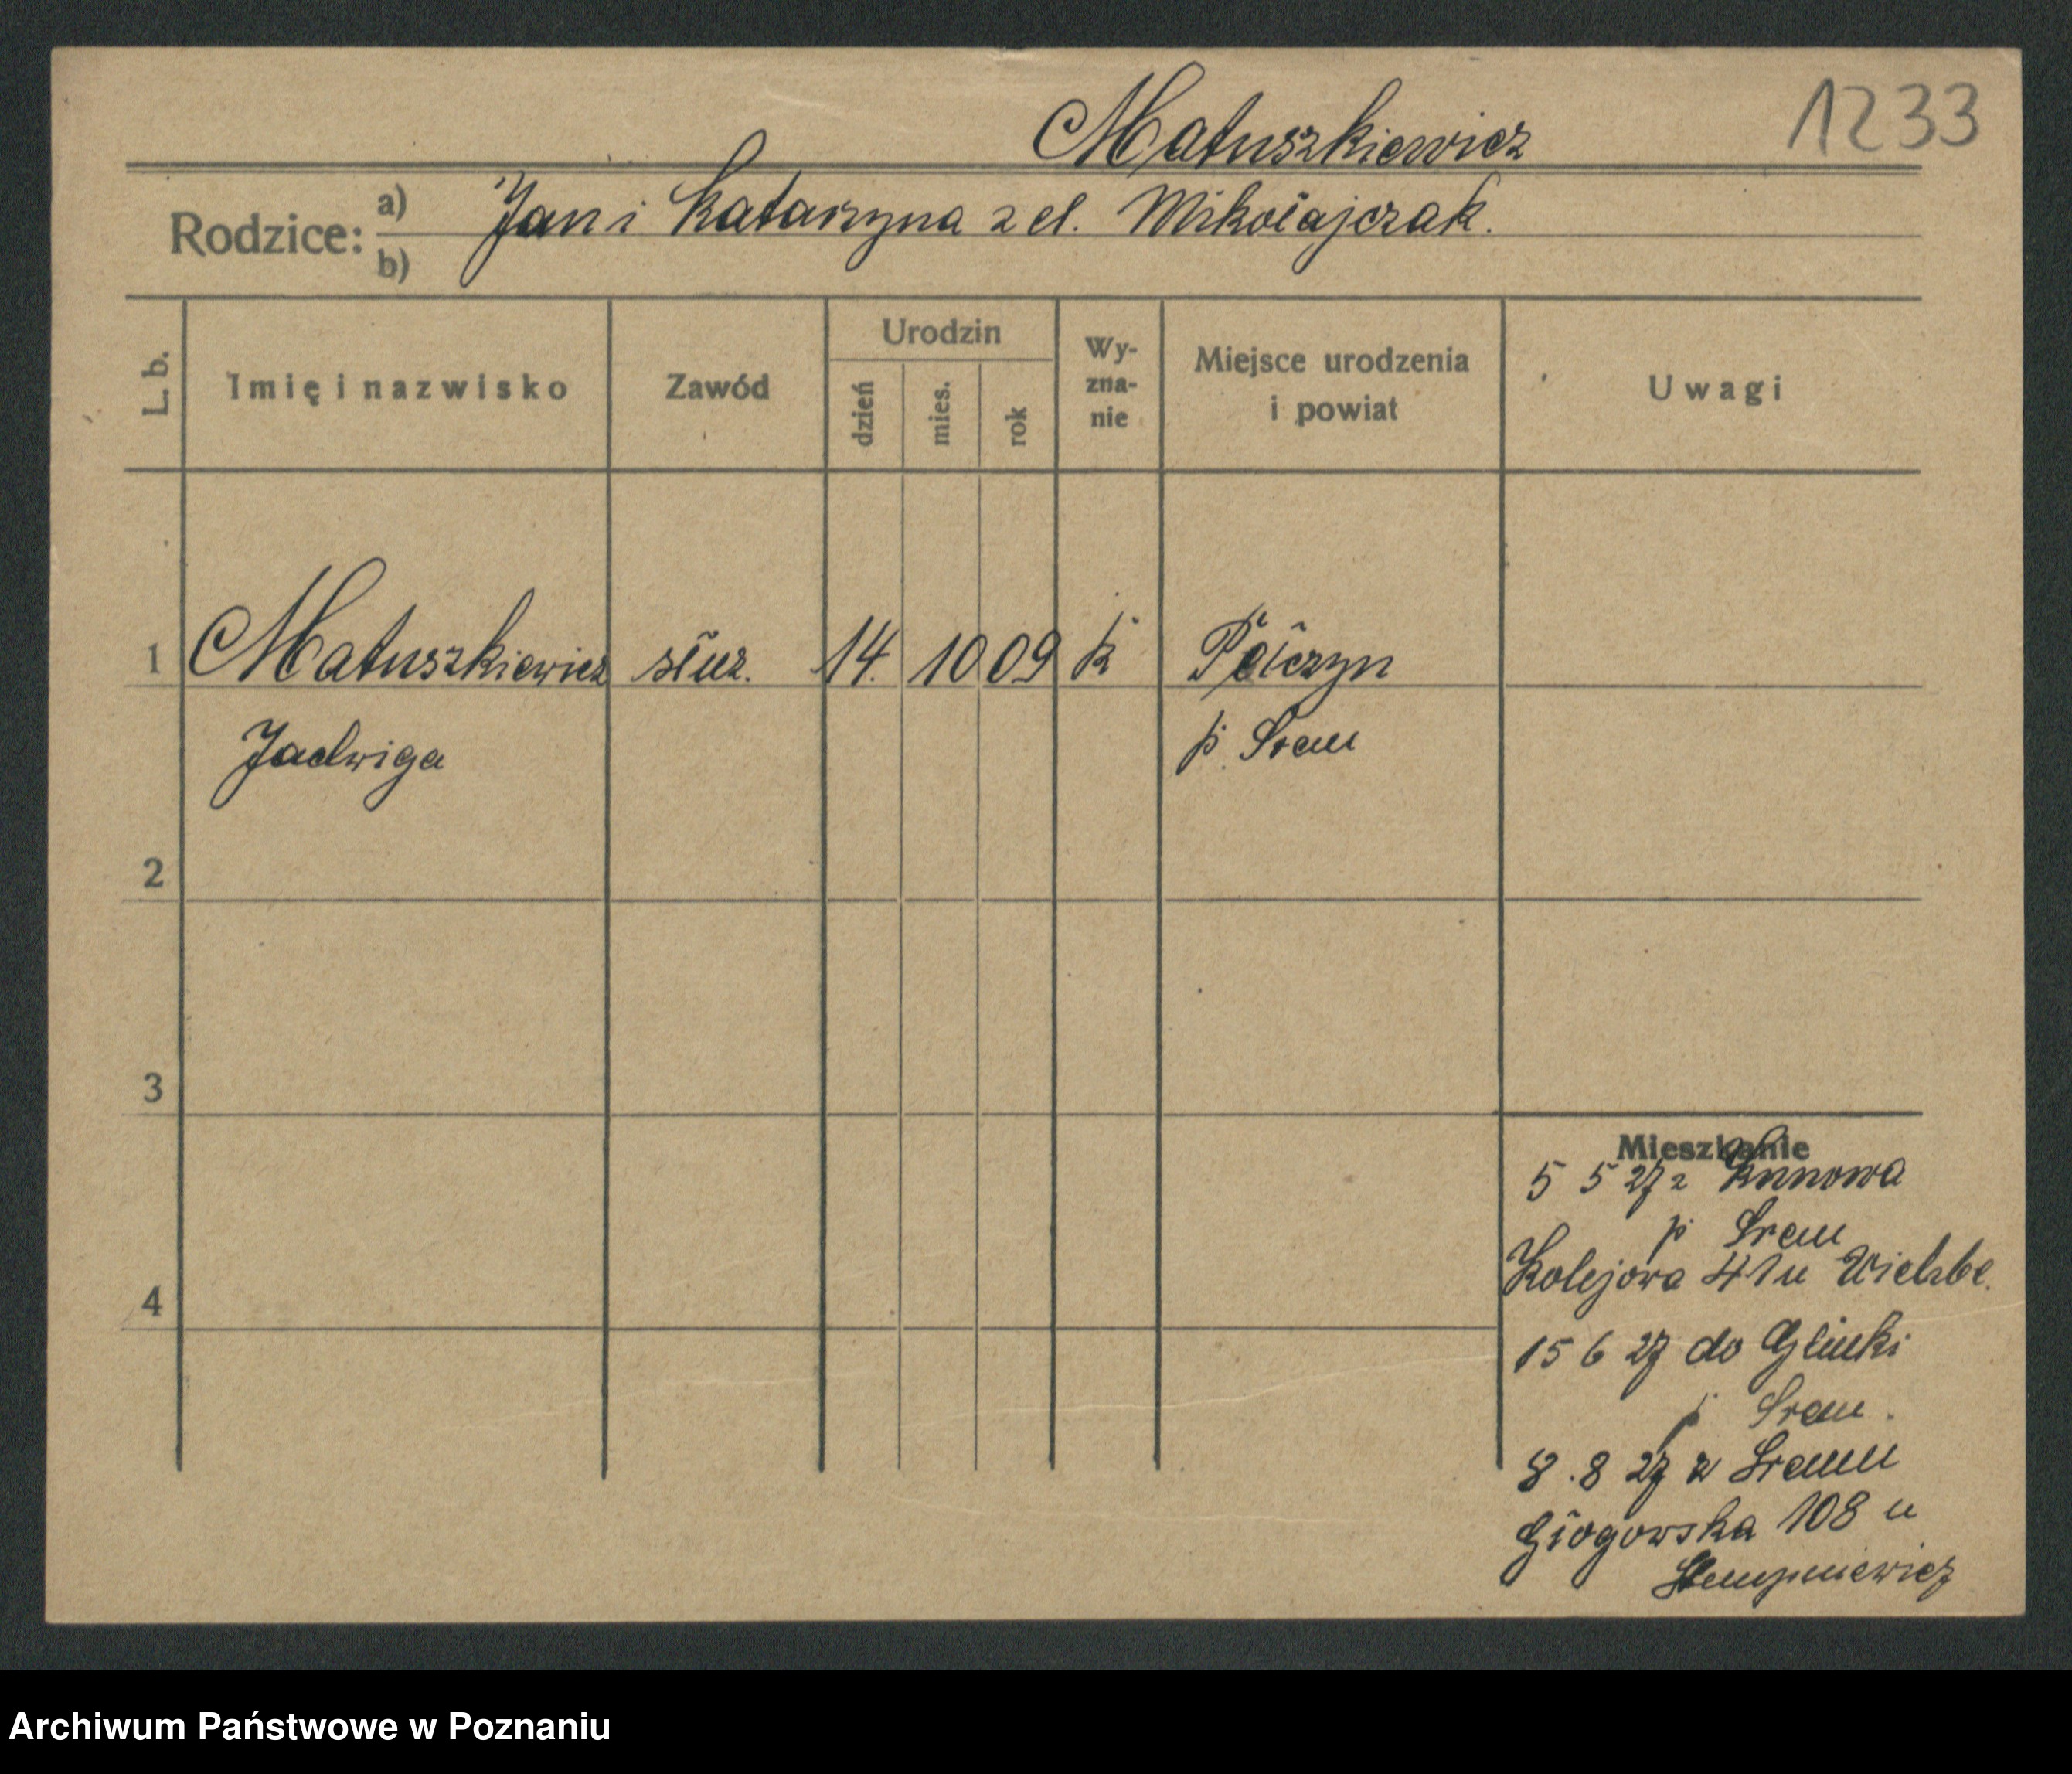 Matuszkiewicz
1233
Rodzice:
a) Jan i Katarzyna z d. Mikołajczak.
b)
L. b.
Imię i nazwisko
Zawód
Urodzin
dzień
mies.
rok
Wy-
zna-
nie
Miejsce urodzenia
i powiat
Uwagi
1 Matuszkiewicz służ. 14. 10 09 k Pełczyn
Jadwiga p. Śrem
2
3
4
Mieszkanie
5 5 27 z Kunowa
p Śrem
Kolejowa 41 u
15 6 27 do
p Śrem.
8.8 27 z Śremu
Głogowska 108 u
Archiwum Państwowe w Poznaniu